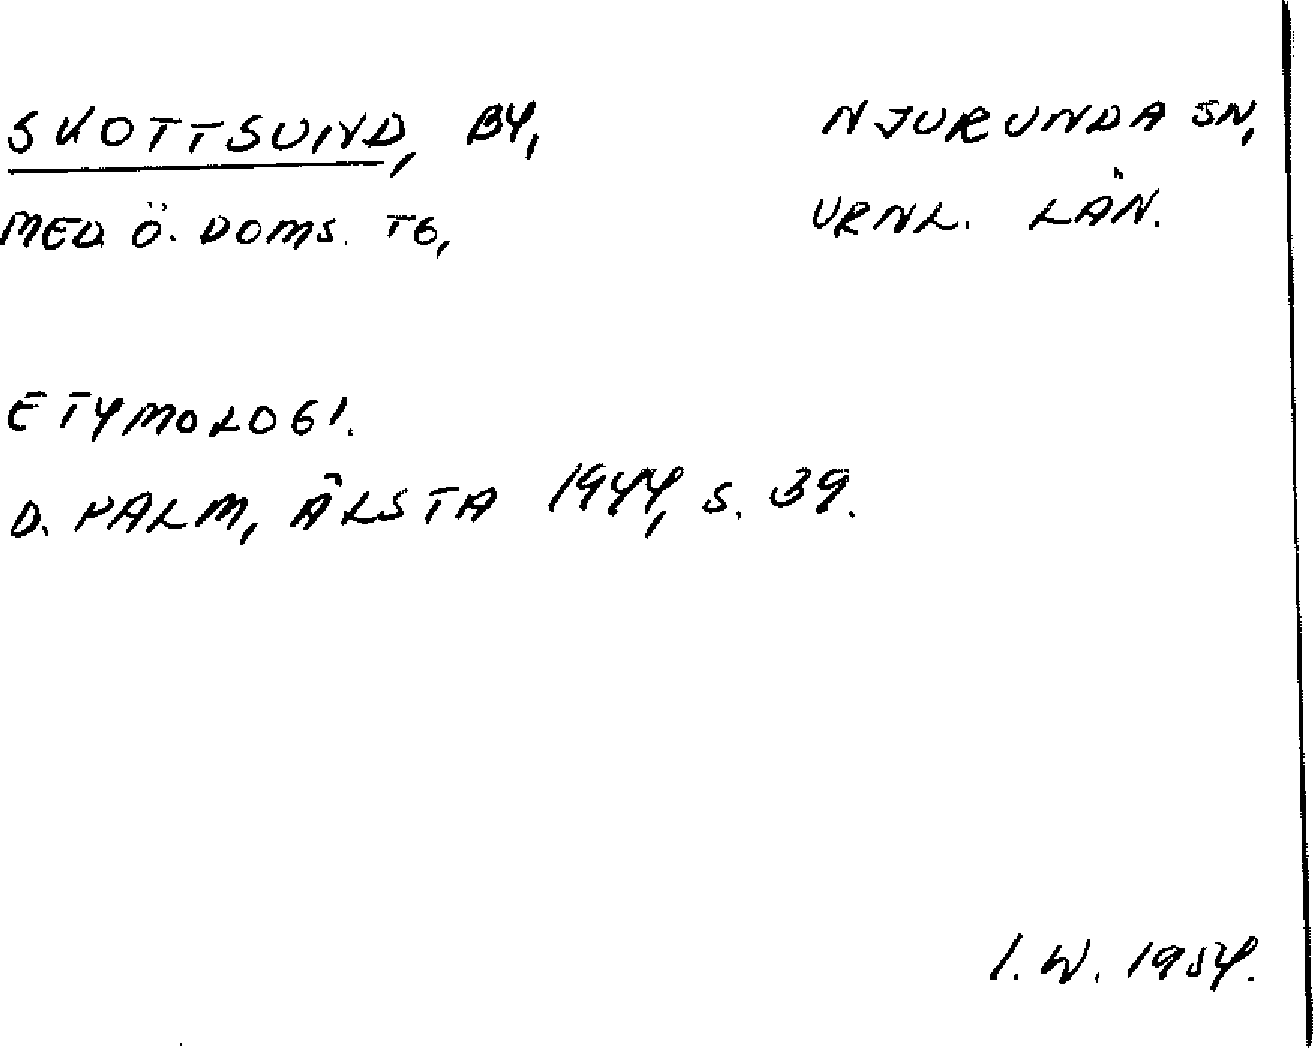 SKOTTSUND, BY, NJURUNDA SN,
MED. Ö. DOMS. TG, VRNL. LÄN.
ETYMOLOGI.
D. PALM, ÄLSTA 1944, S. 39.
I. W. 1954.